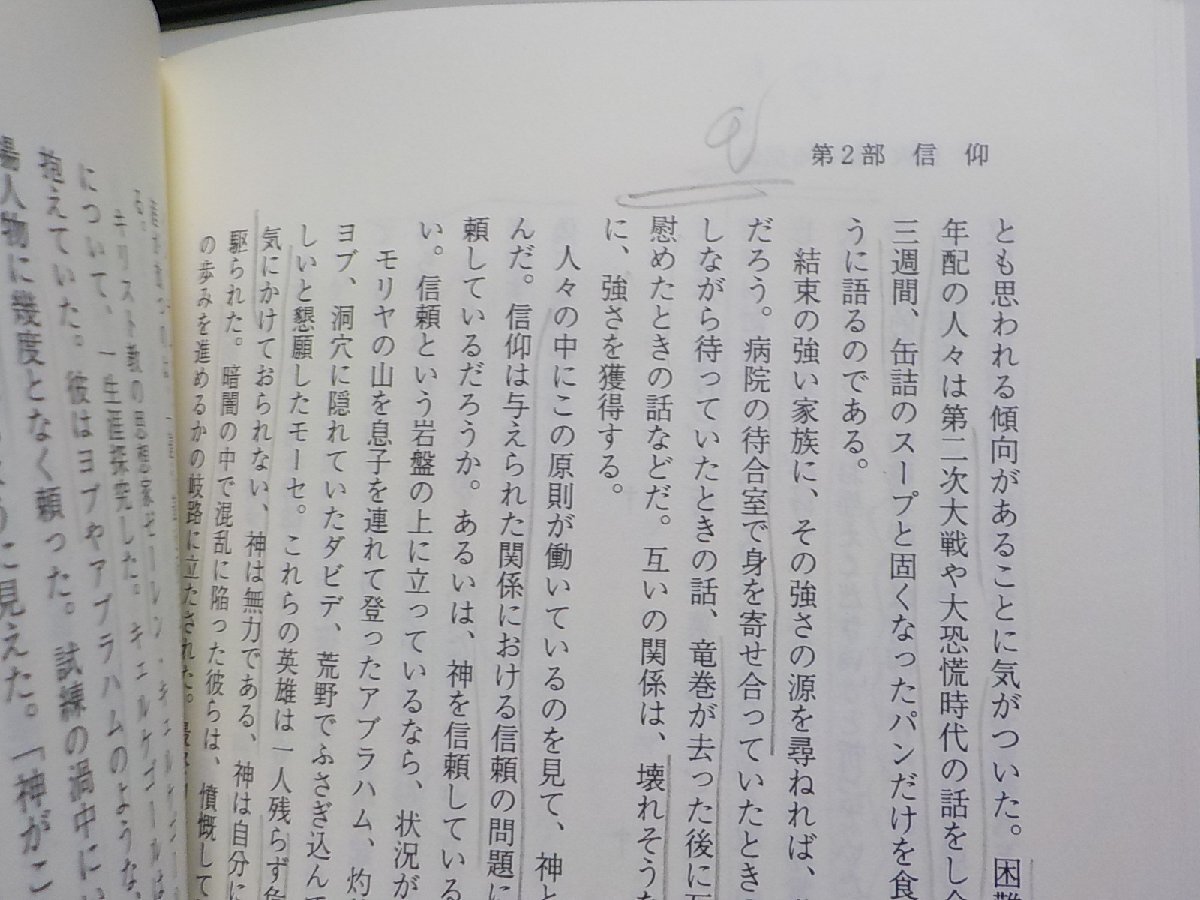 第2部 信 仰
とも思われる傾向があることに気がついた。困難
年配の人々は第二次大戦や大恐慌時代の話をし
三週間、缶詰のスープと固くなったパンだけを食
うに語るのである。
結束の強い家族に、その強さの源を尋ねれば、
だろう。病院の待合室で身を寄せ合っていたとき
しながら待っていたときの話、竜巻が去った後に
慰めたときの話などだ。互いの関係は、壊れそうな
に、強さを獲得する。
人々の中にこの原則が働いているのを見て、神と
んだ。信仰は与えられた関係における信頼の問題に
頼しているだろうか。あるいは、神を信頼している
い。信頼という岩盤の上に立っているなら、状況が
モリヤの山を息子を連れて登ったアブラハム、灼
ヨブ、洞穴に隠れていたダビデ、荒野でふさぎ込んで
しいと懇願したモーセ。これらの英雄は一人残らず危
気にかけておられない、神は無力である、神は自分に
駆られた。暗闇の中で混乱に陥った彼らは、憤慨して
の歩みを進めるかの岐路に立たされた。最終
る。
キリスト教の思想家セーレン・キェルケゴー
について、一生涯探究した。キェルケゴールは
抱えていた。彼はヨブやアブラハムのような、
場人物に幾度となく頼った。試練の渦中に
に見えた。「神がこ